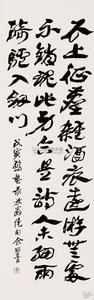 衣上征塵雜酒痕遠遊無處
不銷魂此身合是詩人未細雨
騎驢入劍門
戊寅 放翁絕句